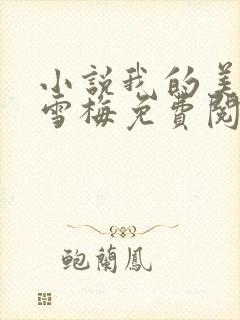 小説我的美
雪梅免費閱
鮑蘭鳳